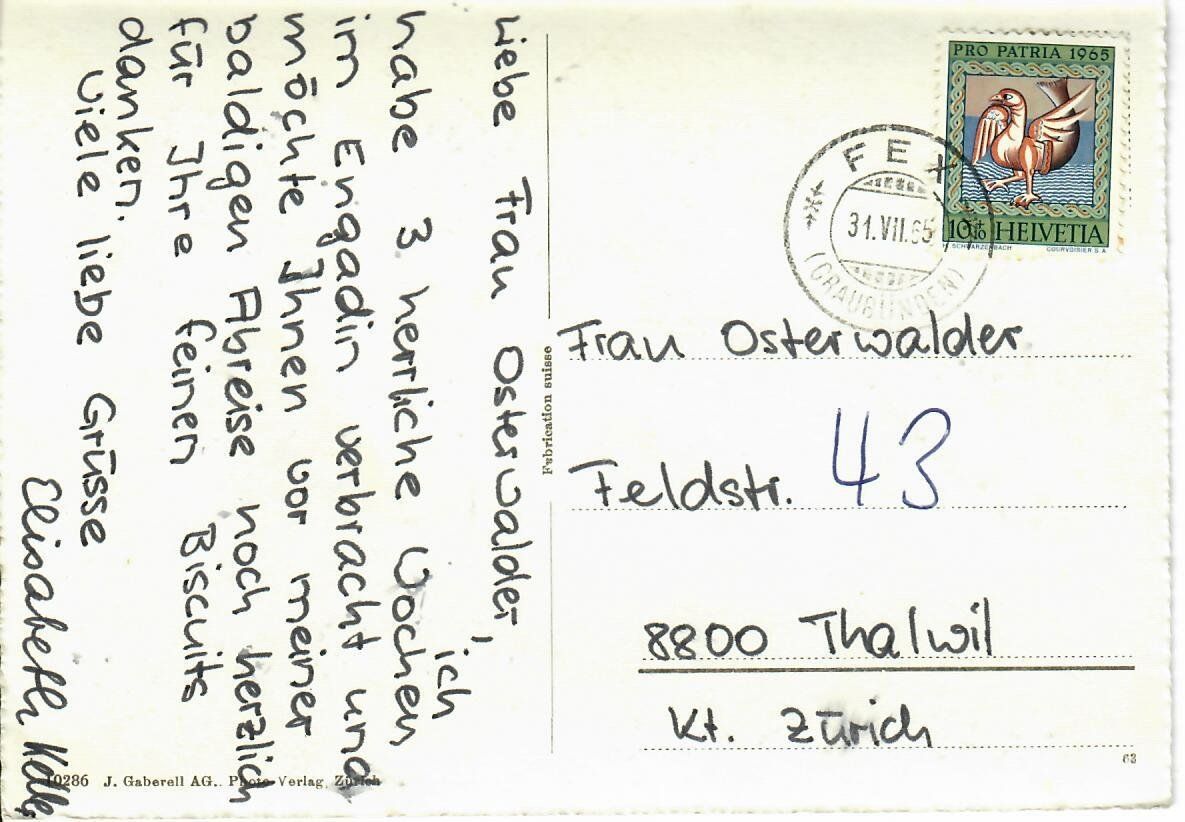 Liebe Frau Osterwalder, ich
habe 3 herrliche Wochen
im Engadin verbracht und
möchte Ihnen vor meiner
baldigen Abreise noch herzlich
für Ihre feinen Biscuits
danken.
Viele liebe Grüsse
Elisabeth
PRO PATRIA 1965
10+10 HELVETIA
H. SCHWARZENBACH COURVOISIER S A
FEX
31.VII.65
(GRAUBÜNDEN)
Fabrication suisse
Frau Osterwalder
Feldstr. 43
8800 Thalwil
Kt. Zürich
10286 J. Gaberell AG.. Photo-Verlag, Zürich
63